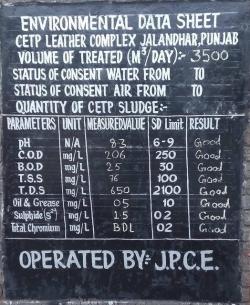 ENVIRONMENTAL DATA SHEET
CETP LEATHER COMPLEX JALANDHAR, PUNJAB
VOLUME OF TREATED (M³/DAY):- 3500
STATUS OF CONSENT WATER FROM TO
STATUS OF CONSENT AIR FROM TO
QUANTITY OF CETP SLUDGE:-
PARAMETERS UNIT MEASURED VALUE SD Limit RESULT
pH N/A 8.3 6-9 Good
C.O.D mg/L 206 250 Good
B.O.D mg/L 25 30 Good
T.S.S mg/L 76 100 Good
T.D.S mg/L 650 2100 Good
Oil & Grease mg/L 05 10 Good
Sulphide(s²⁻) mg/L 1.5 02 Good
Total Chromium mg/L BDL 02 Good
OPERATED BY:- J.P.C.E.